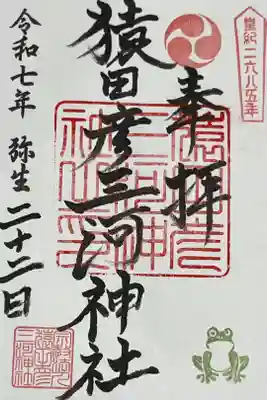 皇紀二六八五年
奉拝
猿田彦三河神社
令和七年 弥生 二十二日